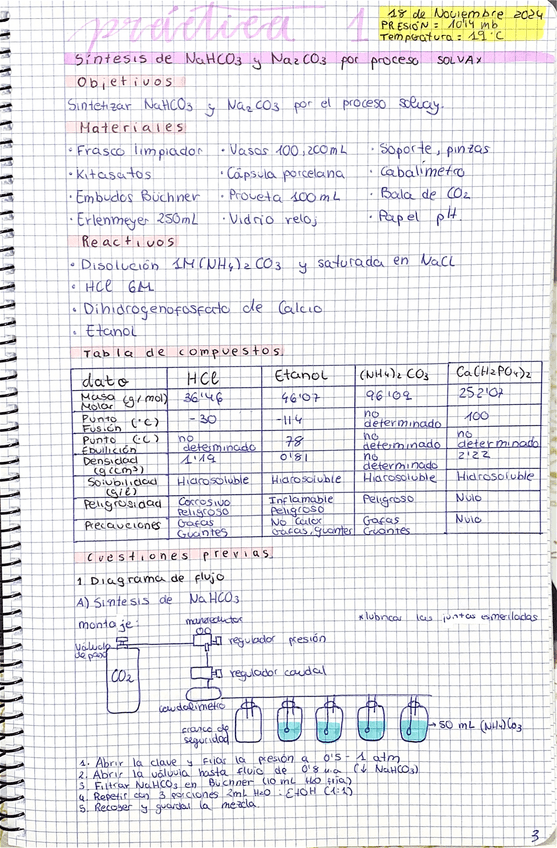 práctica 1
18 de Noviembre 2024
PRESIÓN = 1014 mb
Temperatura = 19°C
Síntesis de NaHCO3 y Na2CO3 por proceso SOLVAY
Objetivos
Sintetizar NaHCO3 y Na2CO3 por el proceso solvay.
Materiales
· Frasco limpiador · Vasos 100, 200mL · Soporte, pinzas
· Kitasatos · Cápsula porcelana · Cabalímetro
· Embudos Büchner · Proveta 100mL · Bala de CO2
· Erlenmeyer 250mL · Vidrio reloj · Papel pH.
Reactivos
· Disolución 1M (NH4)2CO3 y saturada en NaCl
· HCl 6M
· Dihidrogenofosfato de Calcio
· Etanol
Tabla de compuestos
dato HCl Etanol (NH4)2CO3 Ca(H2PO4)2
Masa Molar (g/mol) 36'46 46'07 96'09 252'07
Punto Fusión (°C) -30 -114 no determinado 100
Punto Ebullición (°C) no determinado 78 no determinado no determinado
Densidad (g/cm3) 1'19 0'81 no determinado 2'22
Solubilidad (g/l) Hidrosoluble Hidrosoluble Hidrosoluble Hidrosoluble
Peligrosidad Corrosivo Peligroso Inflamable Peligroso Peligroso Nulo
Precauciones Gafas Guantes No Calor Gafas, Guantes Gafas Guantes Nulo
Cuestiones previas
1. Diagrama de flujo
A) Síntesis de NaHCO3
montaje: manoreductor *lubricar las juntas esmeriladas
Válvula de paso regulador presión
CO2 regulador caudal
caudalímetro
frasco de seguridad → 50 mL (NH4)2CO3
1. Abrir la llave y fijar la presión a 0'5 - 1 atm
2. Abrir la válvula hasta flujo de 0'8 (↓ NaHCO3)
3. Filtrar NaHCO3 en Büchner (10 mL H2O fría)
4. Repetir con 3 porciones 2mL H2O : EtOH (1:1)
5. Recoger y guardar la mezcla.
3